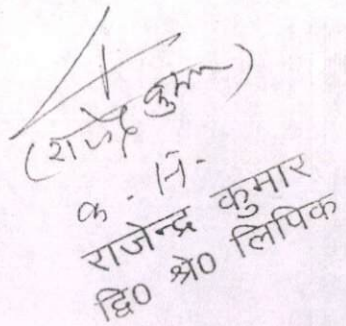 (राजेन्द्र कुमार)
राजेन्द्र कुमार
द्वि0 श्रे0 लिपिक